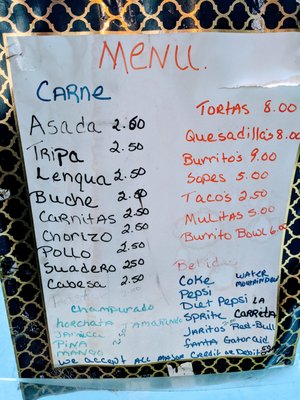 MENU.
CARNE
Asada 2.50
Tripa 2.50
Lengua 2.50
Buche 2.50
CARNITAS 2.50
Chorizo 2.50
Pollo 2.50
Suadero 250
Cabesa 2.50
TORTAS 8.00
Quesadilla's 8.00
Burrito's 9.00
Sopes 5.00
TACO'S 2.50
MULITAS 5.00
Burrito Bowl 6.00
Bebidas
Coke WATER
Pepsi MOUNTAINDEW
Diet Pepsi LA
Sprite CARRETA
Jaritos Red-Bull
fanta Gatoraid
Champurado
horchata TAMARINDO
JAMAICA
PINA
MANGO
we accept ALL MAJOR Credit or Debit